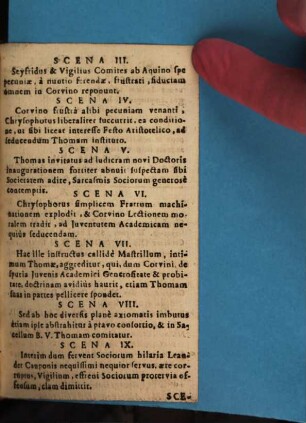 SCENA III.
Seyfridus & Vigilius Comites ab Aquino spe
pecuniæ, à nuntio ferendæ, frustrati, fiduciam
omnem in Corvino reponunt.
SCENA IV.
Corvino frustrà alibi pecuniam venanti,
Chrysophorus liberaliter succurrit, ea conditio-
ne, ut sibi liceat interesse Festo Aristotelico, ad
seducendum Thomam instituto.
SCENA V.
Thomas invitatus ad ludicram novi Doctoris
Inaugurationem fortiter abnuit suspectam sibi
Societatem adire, Sarcasmis Sociorum generosè
contemptis.
SCENA VI.
Chrysophorus simplicem Fratrum machi-
nationem explodit, & Corvino Lectionem mo-
ralem tradit, ad Juventutem Academicam ne-
quiùs seducendam.
SCENA VII.
Hac ille instructus callidè Mastrillum, inti-
mum Thomæ, aggreditur, qui, dum Corvini, de
sputia Juvenis Academici Generositate & probi-
tate, doctrinam avidiùs haurit, etiam Thomam
suas in partes pellicere spondet.
SCENA VIII.
Sed ab hoc diversis planè axiomatis imbutus
etiam ipse abstrahitur à pravo consortio, & in Sa-
cellum B. V. Thomam comitatur.
SCENA IX.
Interim dum fervent Sociorum hilaria Lean-
der Cauponis nequissimi nequior servus, ære cor-
ruptus, Vigilium, effreni Sociorum protervia of-
fensum, clam dimittit.
SCE-